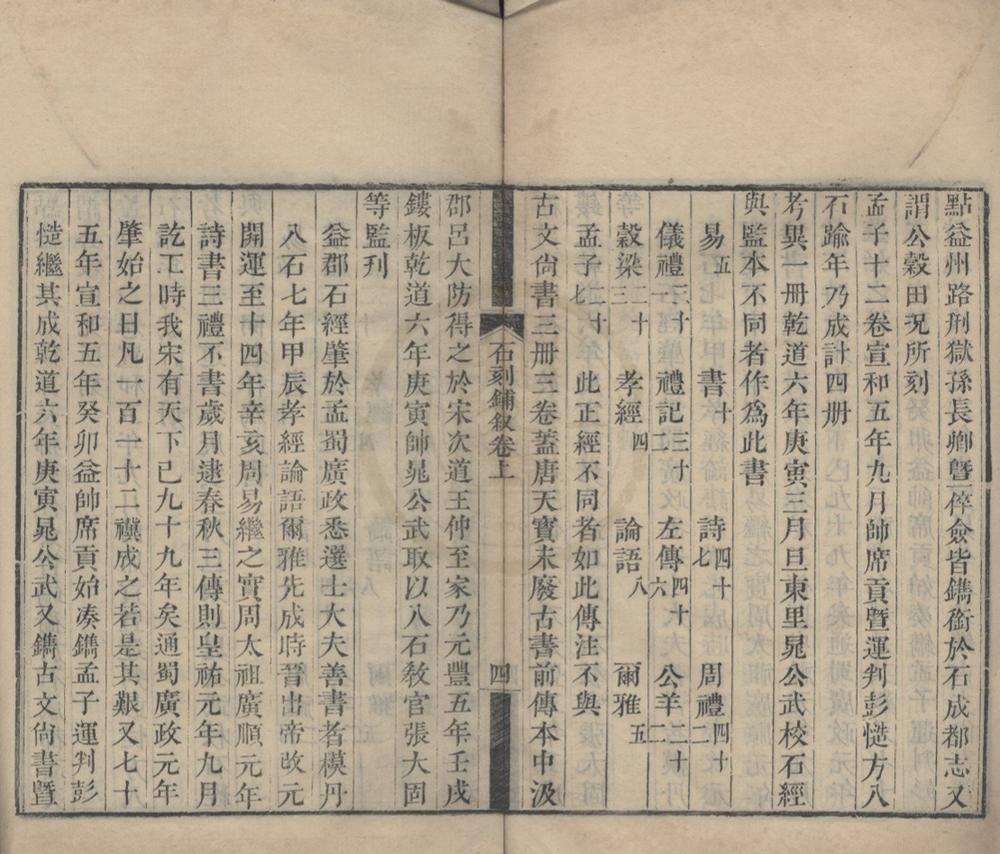 點益州路刑獄孫長卿曁倅僉皆鐫銜於石成都志又
謂公穀田况所刻
孟子十二卷宣和五年九月帥席貢曁運判彭慥方入
石踰年乃成計四册
考異一册乾道六年庚寅三月旦東里晁公武校石經
與監本不同者作爲此書
易五 書十 詩四十七 周禮四十二
儀禮三十一 禮記三十二 左傳四十六 公羊二十二
穀梁二十三 孝經四 論語八 爾雅五
孟子二十七 此正經不同者如此傳注不與
古文尙書三册三卷蓋唐天寶未廢古書前傳本中汲
郡呂大防得之於宋次道王仲至家乃元豐五年壬戌
鏤板乾道六年庚寅帥晁公武取以入石敎官張大固
等監刋
益郡石經肇於孟蜀廣政悉選士大夫善書者模丹
入石七年甲辰孝經論語爾雅先成時晉出帝改元
開運至十四年辛亥周易繼之實周太祖廣順元年
詩書三禮不書歲月逮春秋三傳則皇祐元年九月
訖工時我宋有天下已九十九年矣通蜀廣政元年
肇始之日凡一百一十二禩成之若是其艱又七十
五年宣和五年癸卯益帥席貢始凑鐫孟子運判彭
慥繼其成乾道六年庚寅晁公武又鐫古文尙書曁
石刻鋪叙卷上
四